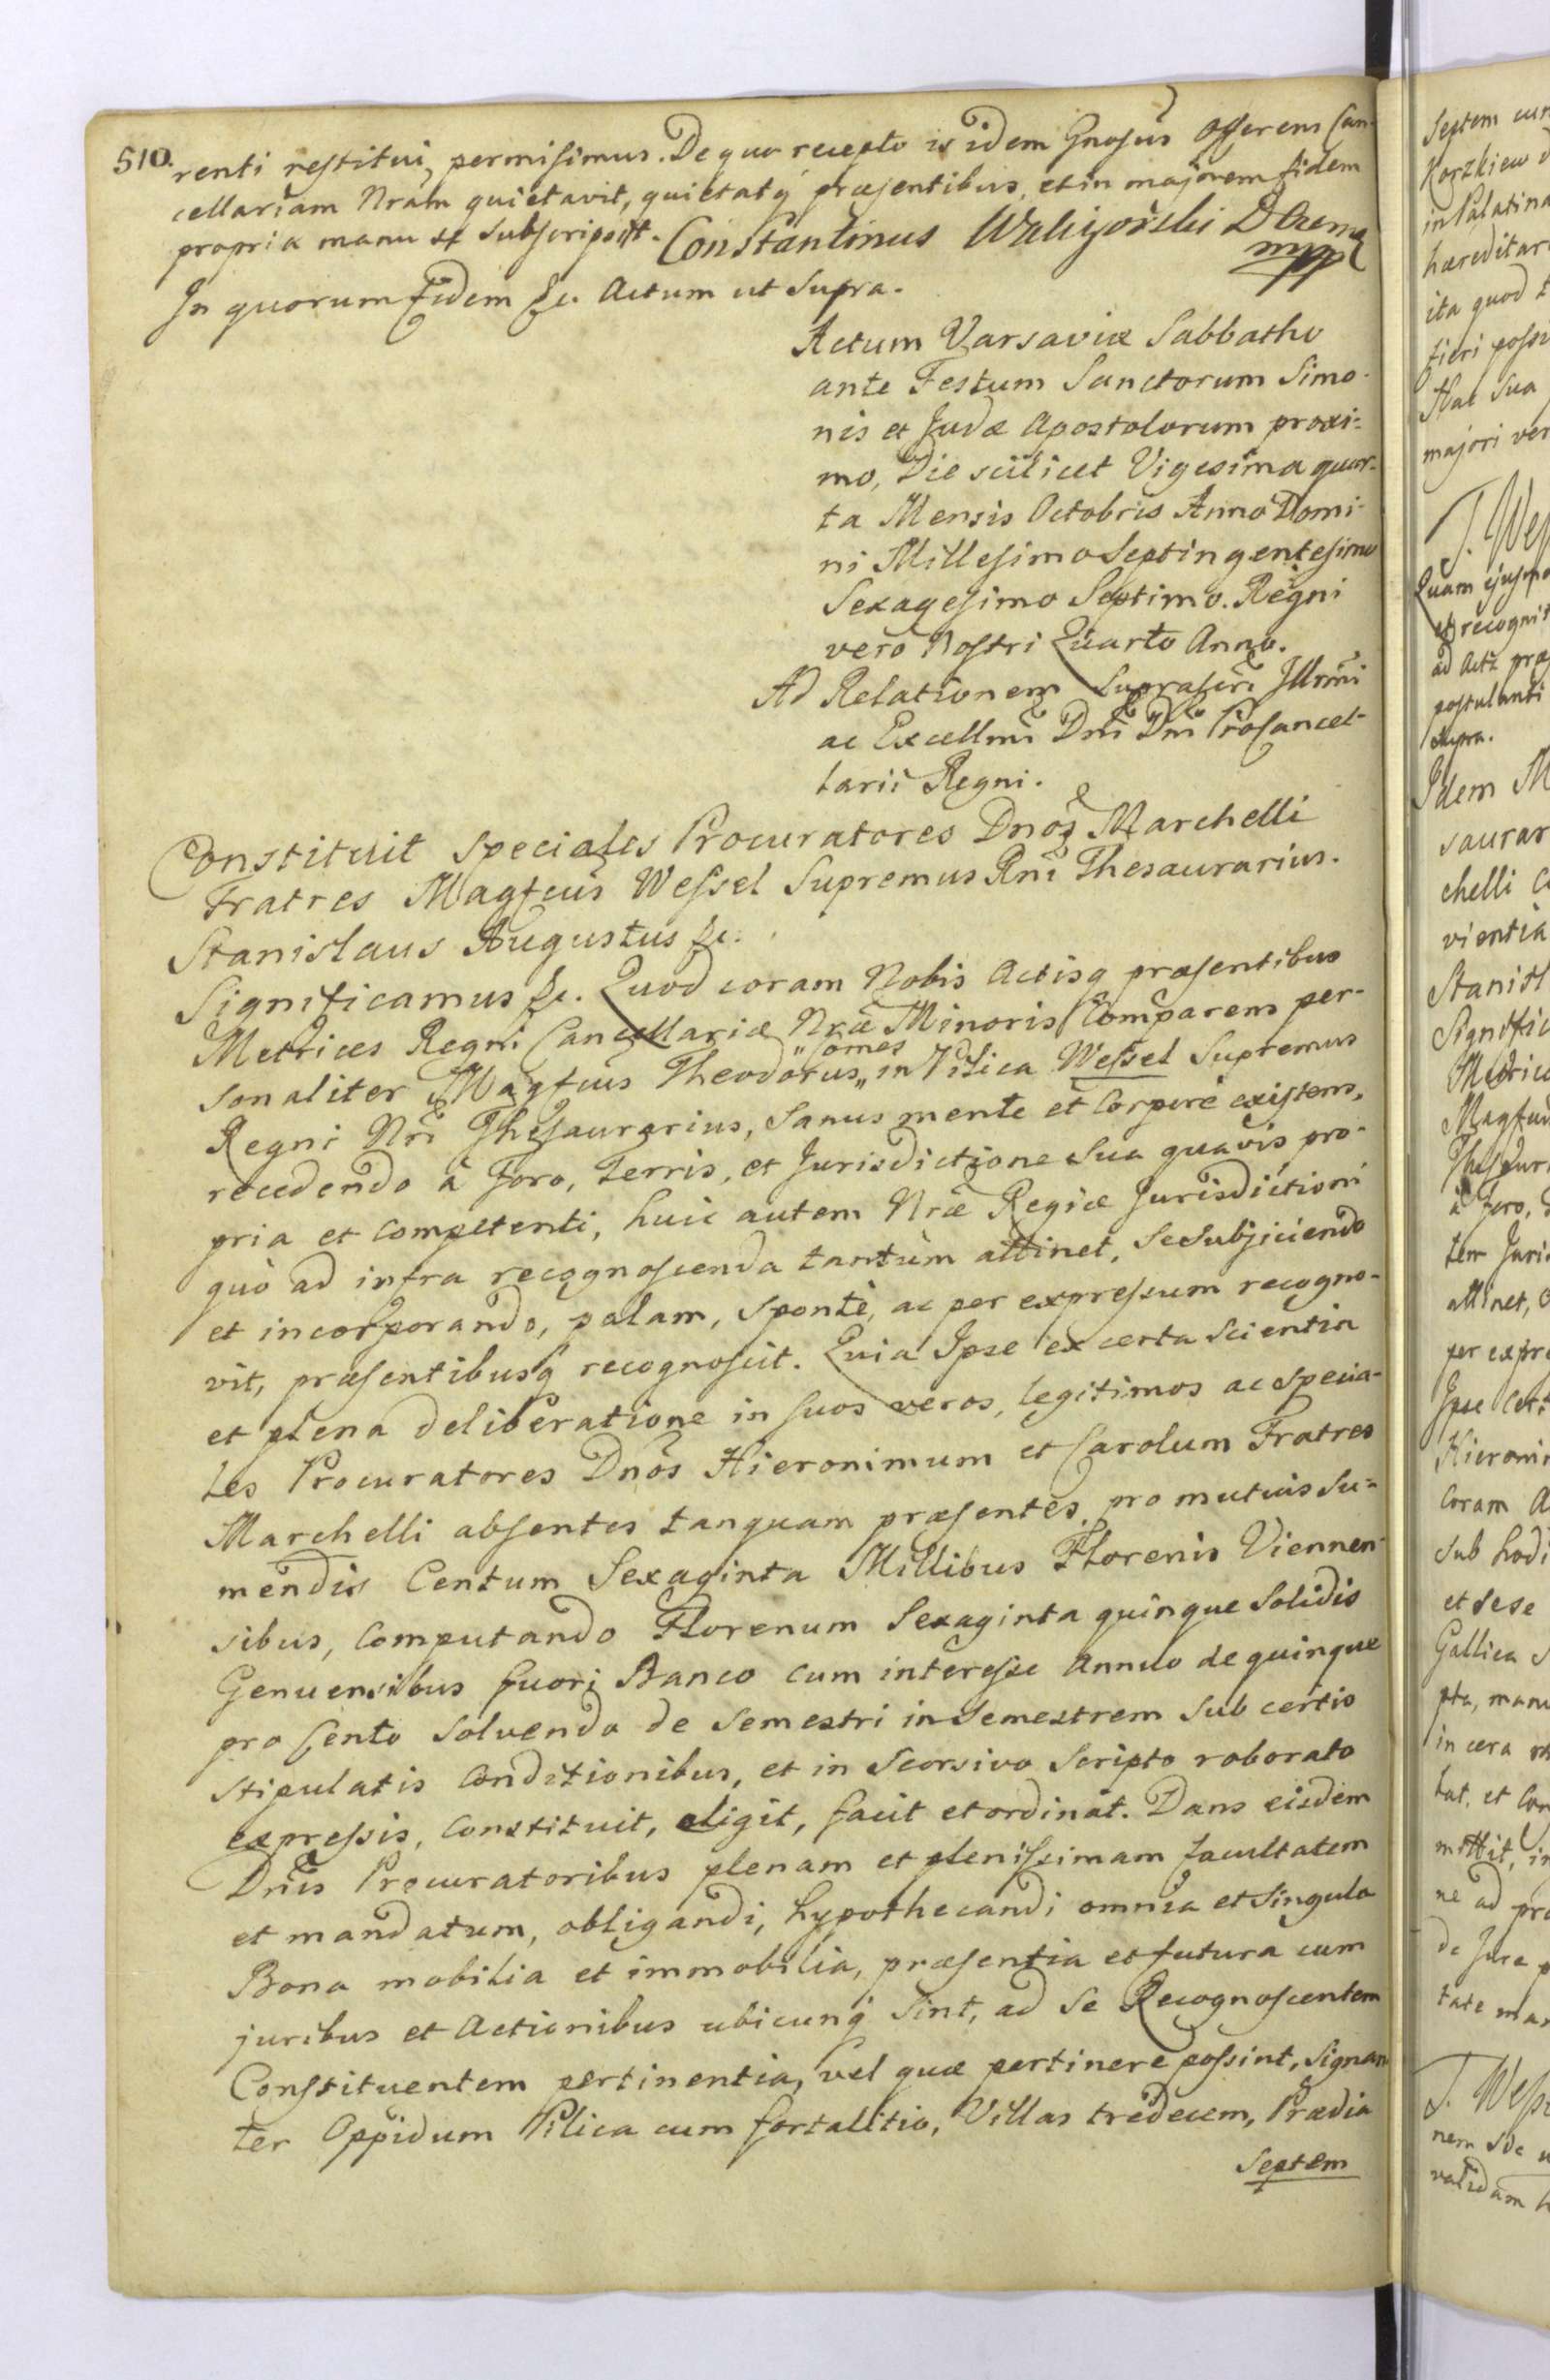 510.
renti restitui, permisimus. De quo recepto is idem Gnosus Offerens Can-
cellariam Nram quietavit, quietatq praesentibus, et in majorem fidem
propria manu se subscripsit. Constantinus
mpp
In quorum fidem &c. Actum ut supra.
Actum Varsaviæ Sabbatho
ante Festum Sanctorum Simo-
nis et Judæ Apostolorum proxi=
mo, Die scilicet Vigesima quar-
ta Mensis Octobris Anno Domi-
ni Millesimo Septingentesimo
Sexagesimo Septimo. Regni
vero Nostri Quarto Anno.
Ad Relationem suprascri Illrmi
ac Excellmi Dni Dni ProCancel-
larii Regni.
Constituit speciales Procuratores Dnos Marchelli
Fratres Magfcus Wessel Supremus Rni Thesaurarius.
Stanislaus Augustus &c.
Significamus &c. Quod coram Nobis Actisq præsentibus
Metrices Regni Cancellariæ Nræ Minoris Comparens per-
sonaliter Magfcus Theodorus „Comes„ in Pilica Wessel Supremus
Regni Nri Thesaurarius, sanus mente et Corpore existens,
recedendo à Foro, Terris, et Jurisdictione sua quavis pro-
pria et competenti, huic autem Nræ Regiæ Jurisdictioni
quò ad infra recognoscenda tantùm attinet, se subjiciendo
et incorporando, palam, spontè, ac per expressum recogno-
vit, præsentibusq recognoscit. Quia Ipse ex certa scientia
et plena deliberatione in suos veros, legitimos ac specia-
les Procuratores Dnos Hieronimum et Carolum Fratres
Marchelli absentes tanquam præsentes, pro mutuis su=
mendis Centum Sexaginta Millibus Florenis Viennen-
sibus, Computando Florenum Sexaginta quinque Solidis
Genuensibus fuori Banco cum interesse annuo de quinque
pro Cento solvendo de semestri in semestrem sub certis
stipulatis Conditionibus, et in seorsivo scripto roborato
expressis, Constituit, eligit, facit et ordinat. Dans eisdem
Dnis Procuratoribus plenam et plenissimam facultatem
et mandatum, obligandi, hypothecandi omnia et singula
Bona mobilia et immobilia, præsentia et futura cum
juribus et Actionibus ubicunq sint, ad se Recognoscentem
Constituentem pertinentia, vel quæ pertinere possint, signan
ter Oppidum Pilica cum fortalitio, Villas tredecem, Prædia
Septem
Septem
Korzkiew
in Palatina
hæreditar
ita quod
fieri poss
Hac sua
majori ver
T. Wess
Quam ejusmo
et recognit
ad Acta præ
postulanti
supra.
Idem M
saurar
chelli
vientia
Stanisl
Signific
Metric
Magfcu
Thesaur
à Foro,
tem Juri
attinet,
per expre
Ipse Cert
Hieroni
Coram A
sub hodi
et sese
Gallica
pta, manu
in cera
hat, et Con
mittit, in
ne ad pro
de Jure p
tate man
T. Wess
nem
validam